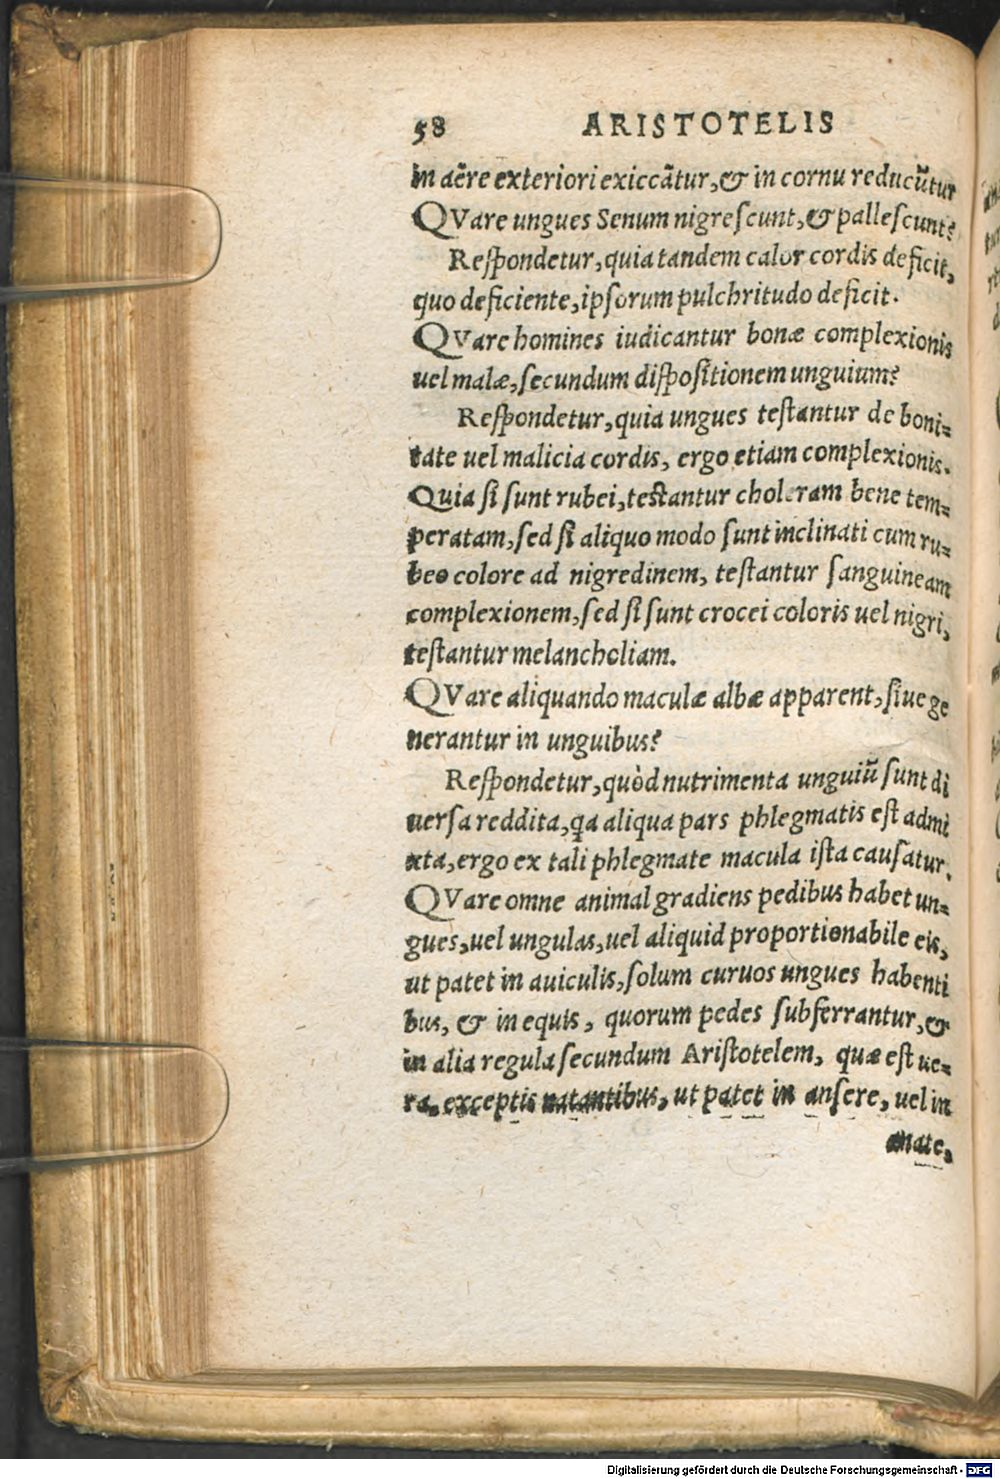 58 ARISTOTELIS
in aẽre exteriori exiccãtur,& in cornu reducũtur
QVare ungues Senum nigrescunt,& pallescunt?
Respondetur,quia tandem calor cordis deficit,
quo deficiente,ipsorum pulchritudo deficit.
QVare homines iudicantur bonæ complexionis
uel malæ,secundum dispositionem unguium?
Respondetur,quia ungues testantur de boni=
tate uel malicia cordis, ergo etiam complexionis.
Quia si sunt rubei,testantur choleram bene tem=
peratam,sed si aliquo modo sunt inclinati cum ru=
beo colore ad nigredinem, testantur sanguineam
complexionem,sed si sunt crocei coloris uel nigri,
testantur melancholiam.
QVare aliquando maculæ albæ apparent,siue ge
nerantur in unguibus?
Respondetur,quòd nutrimenta unguiũ sunt di
uersa reddita,qa aliqua pars phlegmatis est admi
xta,ergo ex tali phlegmate macula ista causatur.
QVare omne animal gradiens pedibus habet un=
gues,uel ungulas,uel aliquid proportionabile eis,
ut patet in auiculis,solum curuos ungues habenti
bus, & in equis, quorum pedes subferrantur,&
in alia regula secundum Aristotelem, quæ est ue=
ra, exceptis natantibus, ut patet in ansere, uel in
anate,
Digitalisierung gefördert durch die Deutsche Forschungsgemeinschaft - DFG